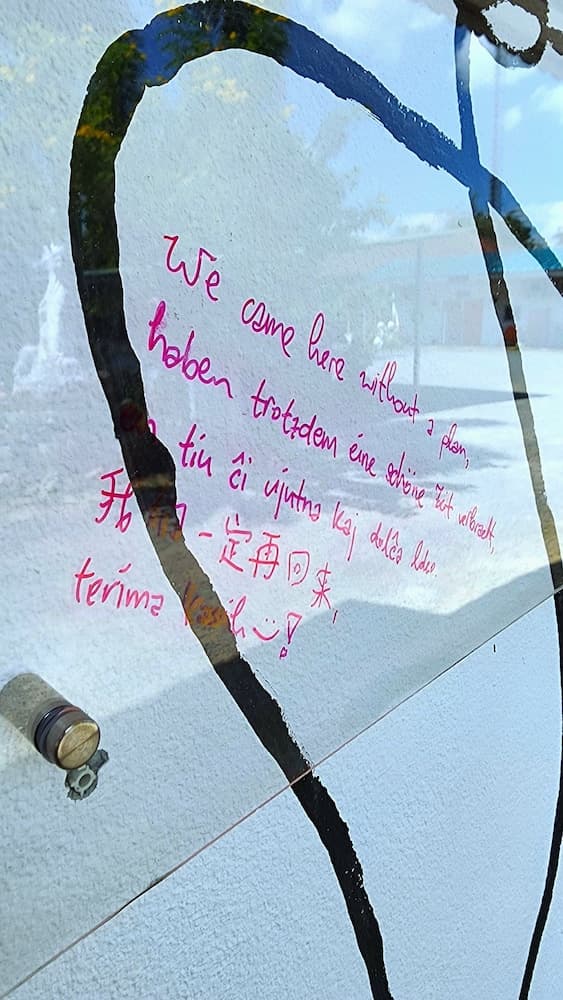 We came here without a plan,
haben trotzdem eine schöne Zeit verbracht,
tiu ĉi ujutna kaj dolĉa loko.
我们一定再回来,
terima kasih :)!